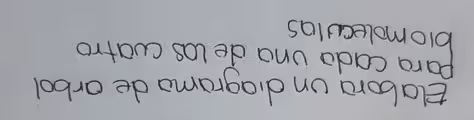 Elabora un diagrama de arbol
para cada una de las cuatro
biomoleculas